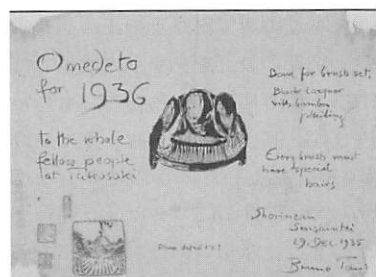 Omedeto
for 1936
to the whole
fellow people
at
Down for brush set,
Black lacquer
with bamboo
Every brush must
have special
hairs
Shorinzan
Senshintei
29. Dec. 1935
Bruno Taut